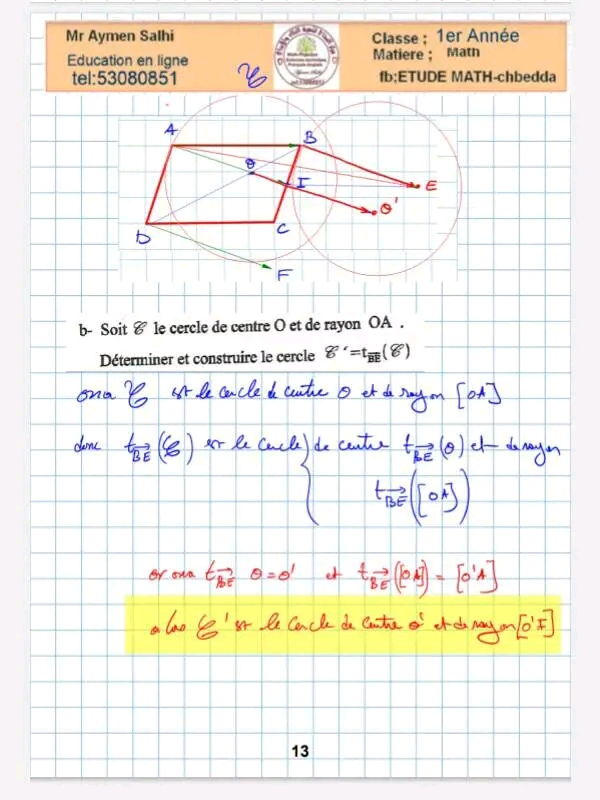 Mr Aymen Salhi
Education en ligne
tel:53080851
Classe ; 1er Année
Matiere ; Math
fb;ETUDE MATH-chbedda
𝒞
A
B
O
I
E
O'
D
C
F
b- Soit 𝒞 le cercle de centre O et de rayon OA .
Déterminer et construire le cercle 𝒞 '=t_BE(𝒞)
ona 𝒞 est le cercle de centre O et de rayon [OA]
donc t_BE→(𝒞) est le cercle { de centre t_BE→(O) et de rayon
t_BE→([OA])
or ona t_BE→ O=O' et t_BE→([OA]) = [O'A]
alors 𝒞' est le cercle de centre O' et de rayon [O'I]
13